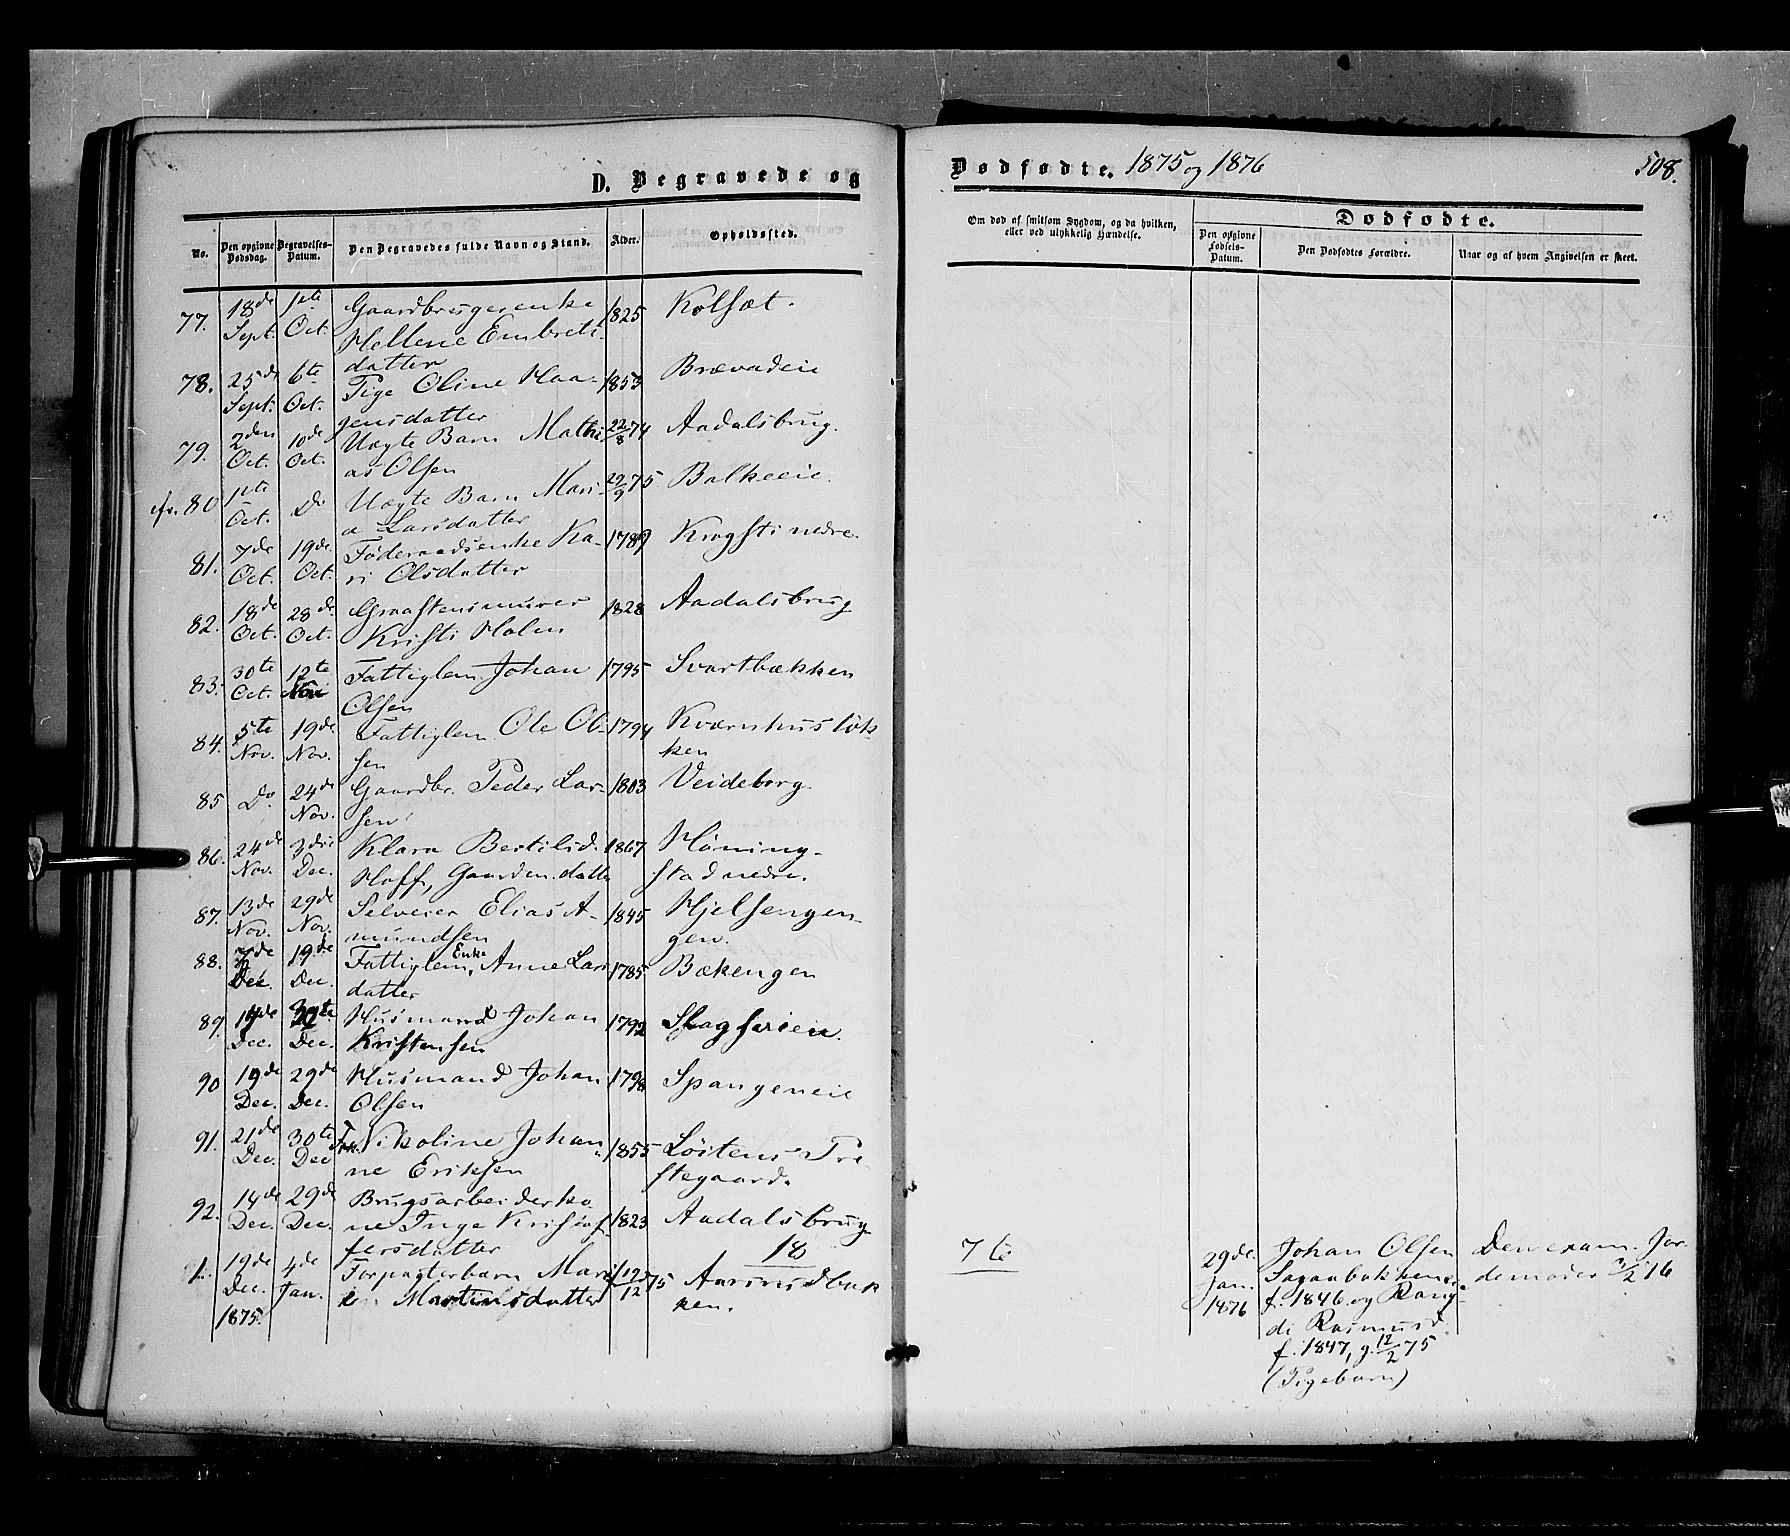 D. Begravede og
No.
Den opgivne Dødsdag.
Begravelses-Datum.
Den Begravedes fulde Navn og Stand.
Alder.
Opholdssted.
77. 18de Sept. 1ste Oct. Gaardbrugerenke Hellene Embrets-datter 1825 Kolsæt.
78. 25de Sept. 6te Oct. Pige Oline Haa-gensdatter 1853 Brævadeie
79. 2den Oct. 10de Oct. Uægte Barn Mathi-as Olsen 22/8 74 Aadalsbrug.
80 1ste Oct. Do Uægte Barn Mari-a Larsdatter 29/9 75 Balkeeie.
81. 7de Oct. 19de Oct. Føderaadsenke Ka-ri Olsdatter 1789 Krogsti nedre.
82. 18de Oct. 28de Oct. Graastensmurer Kristi Holen 1828 Aadalsbrug
83. 30te Oct. 12te Nov Fattiglem Johan Olsen 1795 Svartbækken
84. 5te Nov. 19de Nov. Fattiglem Ole Ol-sen 1794 Kværnhusløk-ken
85 Do 24de Nov. Gaardbr. Peder Lar-sen 1803 Veideborg.
86. 24de Nov. 3die Dec. Klara Bertilsd. Hoff, Gaardm. datter 1867 Høning-stad nedre.
87. 13de Nov. 29de Nov. Selveier Elias A-mundsen 1845 Hjelsengen-gen.
88. 7de Dec. 19de Dec. Fattiglem, Enke Anne Lars datter 1785 Bækengen
89. Dec. Dec. Husmand Johan Kristensen 1792
90 19de Dec. 29de Dec. Husmand Johan Olsen Spangeneie
91. 21de Dec. 30te Dec Nikoline Johan-ne Eriksen 1855 Løitens Præ-stegaard.
92. 14de Dec. 29de Dec. Brugsarbeiderko-ne Inge Kristof-fersdatter 1823 Aadalsbrug
18
1. 19de Dec. 1875. 4de Jan. Forpagterbarn Mari Martinsdatter 19/12 75 Aasrudbak-ken.
Dødfødte. 1875 og 1876
508.
Om død af smitsom Sygdom, og da hvilken, eller ved ulykkelig Hændelse.
Dødfødte.
Den opgivne Fødsels-Datum.
Den Dødfødtes Forældre.
Naar og af hvem Angivelsen er skeet.
29de Jan. 1876
Johan Olsen
f. 1846 og Rang-
di Rasmusd.
f. 1847, g. 12/2 75
(Pigebarn)
Den exam. Jor-
demoder